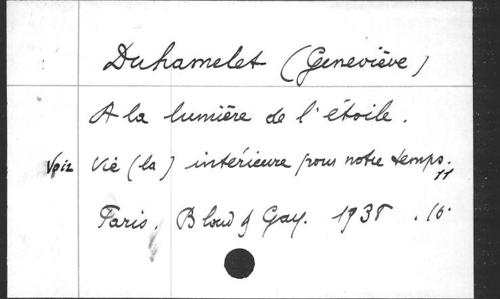 Duhamelet (Geneviève)
A la lumière de l'étoile.
Voir Vie (la) intérieure pour notre temps. 11
Paris. Bloud & Gay. 1938 . 16.